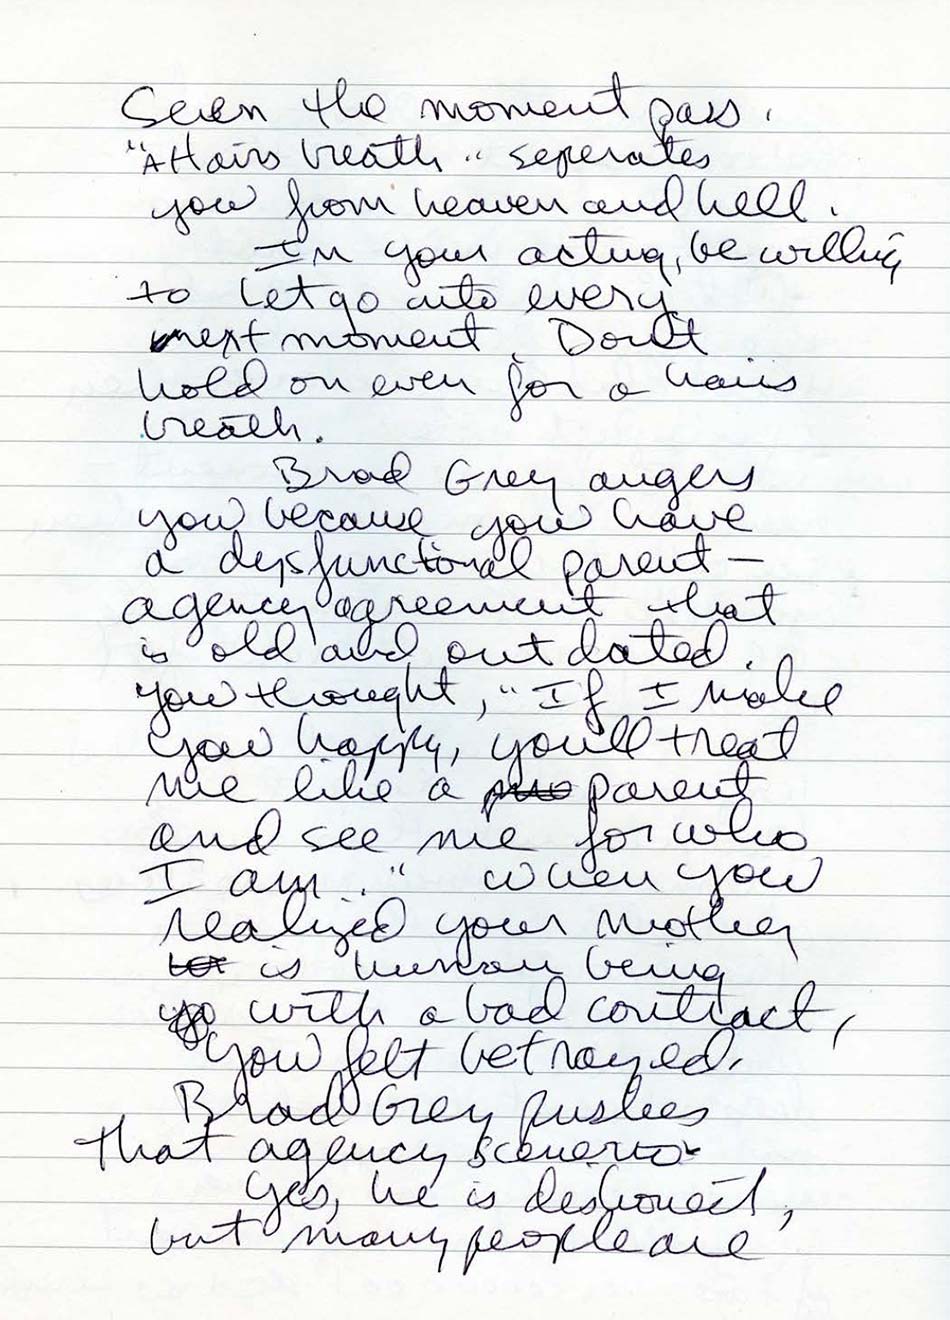 Seen the moment pass.
"A Hairs breath" seperates
you from heaven and hell.
In your acting, be willing
to let go into every
next moment. Don't
hold on even for a hairs
breath.
Brad Grey angers
you because you have
a dysfunctional parent—
agency agreement that
is old and outdated.
You thought, "If I make
you happy, you'll treat
me like a parent
and see me for who
I am." When you
realized your mother
is human being
with a bad contract,
you felt betrayed.
Brad Grey pushes
that agency scenerio
Yes, he is dishonest,
but many people are